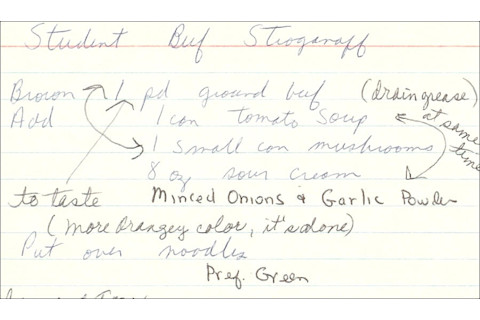 Student Beef Stroganoff
Brown 1 pd ground beef (drain grease)
Add 1 can tomato Soup at same time
1 Small can mushrooms
8 oz sour cream
to taste Minced Onions & Garlic Powder
(more orangey color, it's done)
Put over noodles
Pref. Green